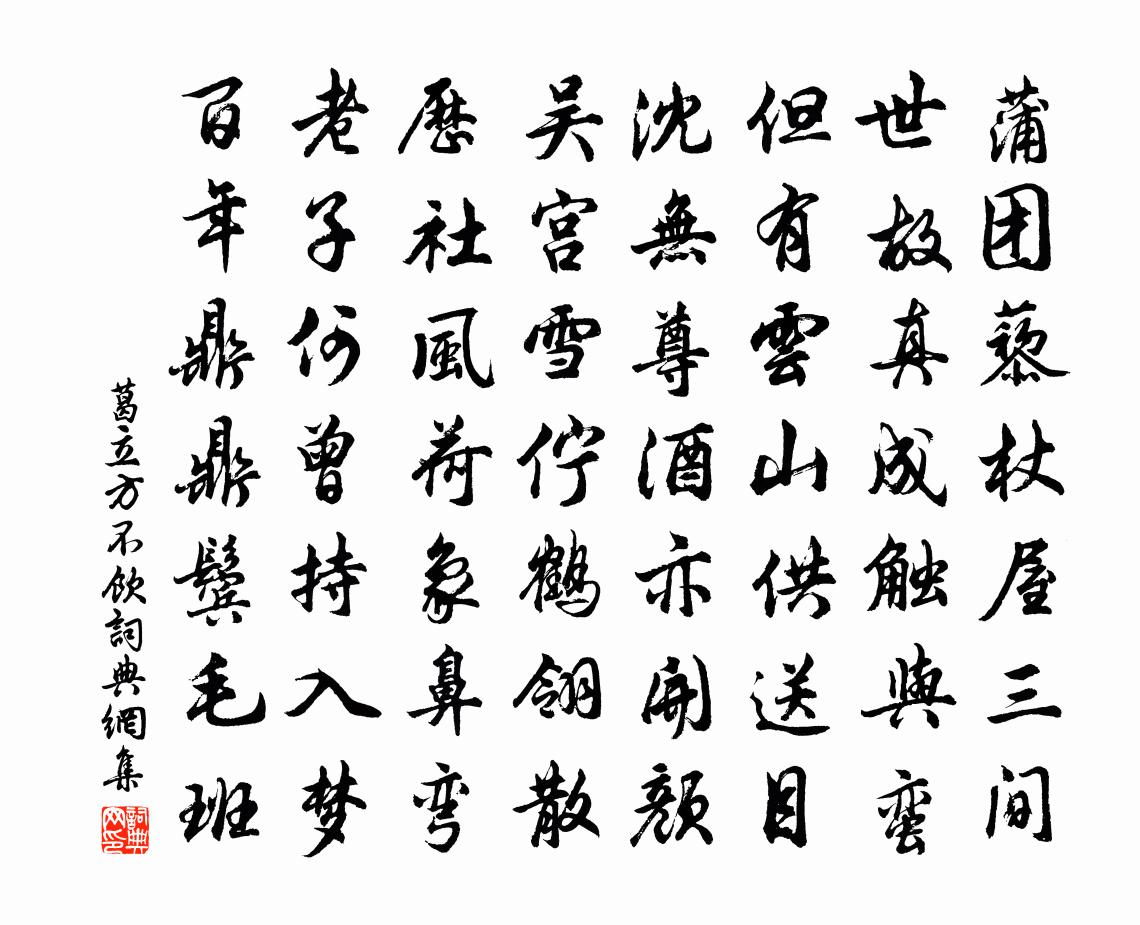 蒲团藜杖屋三间
世故真成触與蛮
但有雲山供送目
沈無尊酒亦開颜
吴宫雪伫鶴翎散
歷社風荷象鼻弯
老子何曾持入梦
百年鼎鼎鬓毛班
葛立方不飲詞典網集
詞典网印